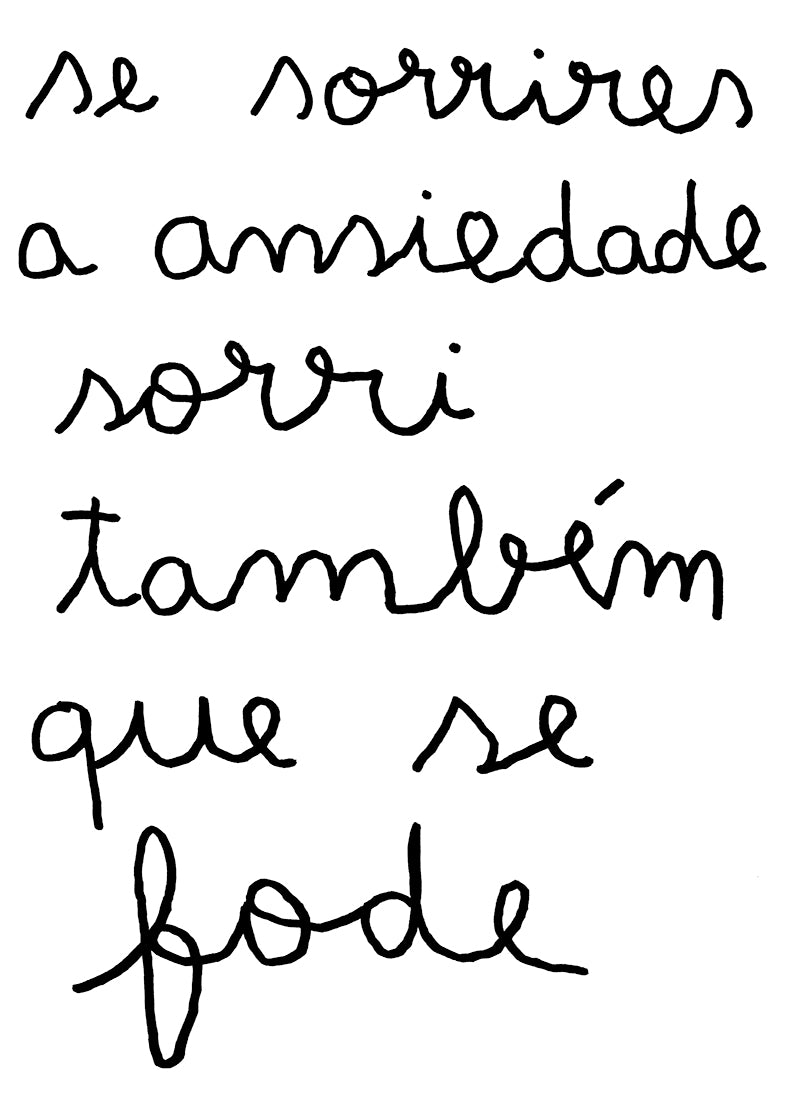 se sorrires
a ansiedade
sorri
também
que se
fode